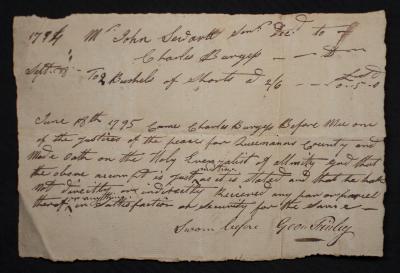 1794 Mr John Sewartt Senr Decd to
Charles Burgess — Dr
Sept. 18 - To 2 Bushels of Shorts a 2/6 — 0..5..0
June 18th 1795 Came Charles Burgess Before Mee one
of the justices of the peace for Queenanns County and
Made Oath on the Holy Evengalist of Almity god that
the above accompt is just as it is stated and that he hath
Not directly or indirectly Recieved any part or parcel
thereof in Sattisfaction or security for the same —
Sworn before